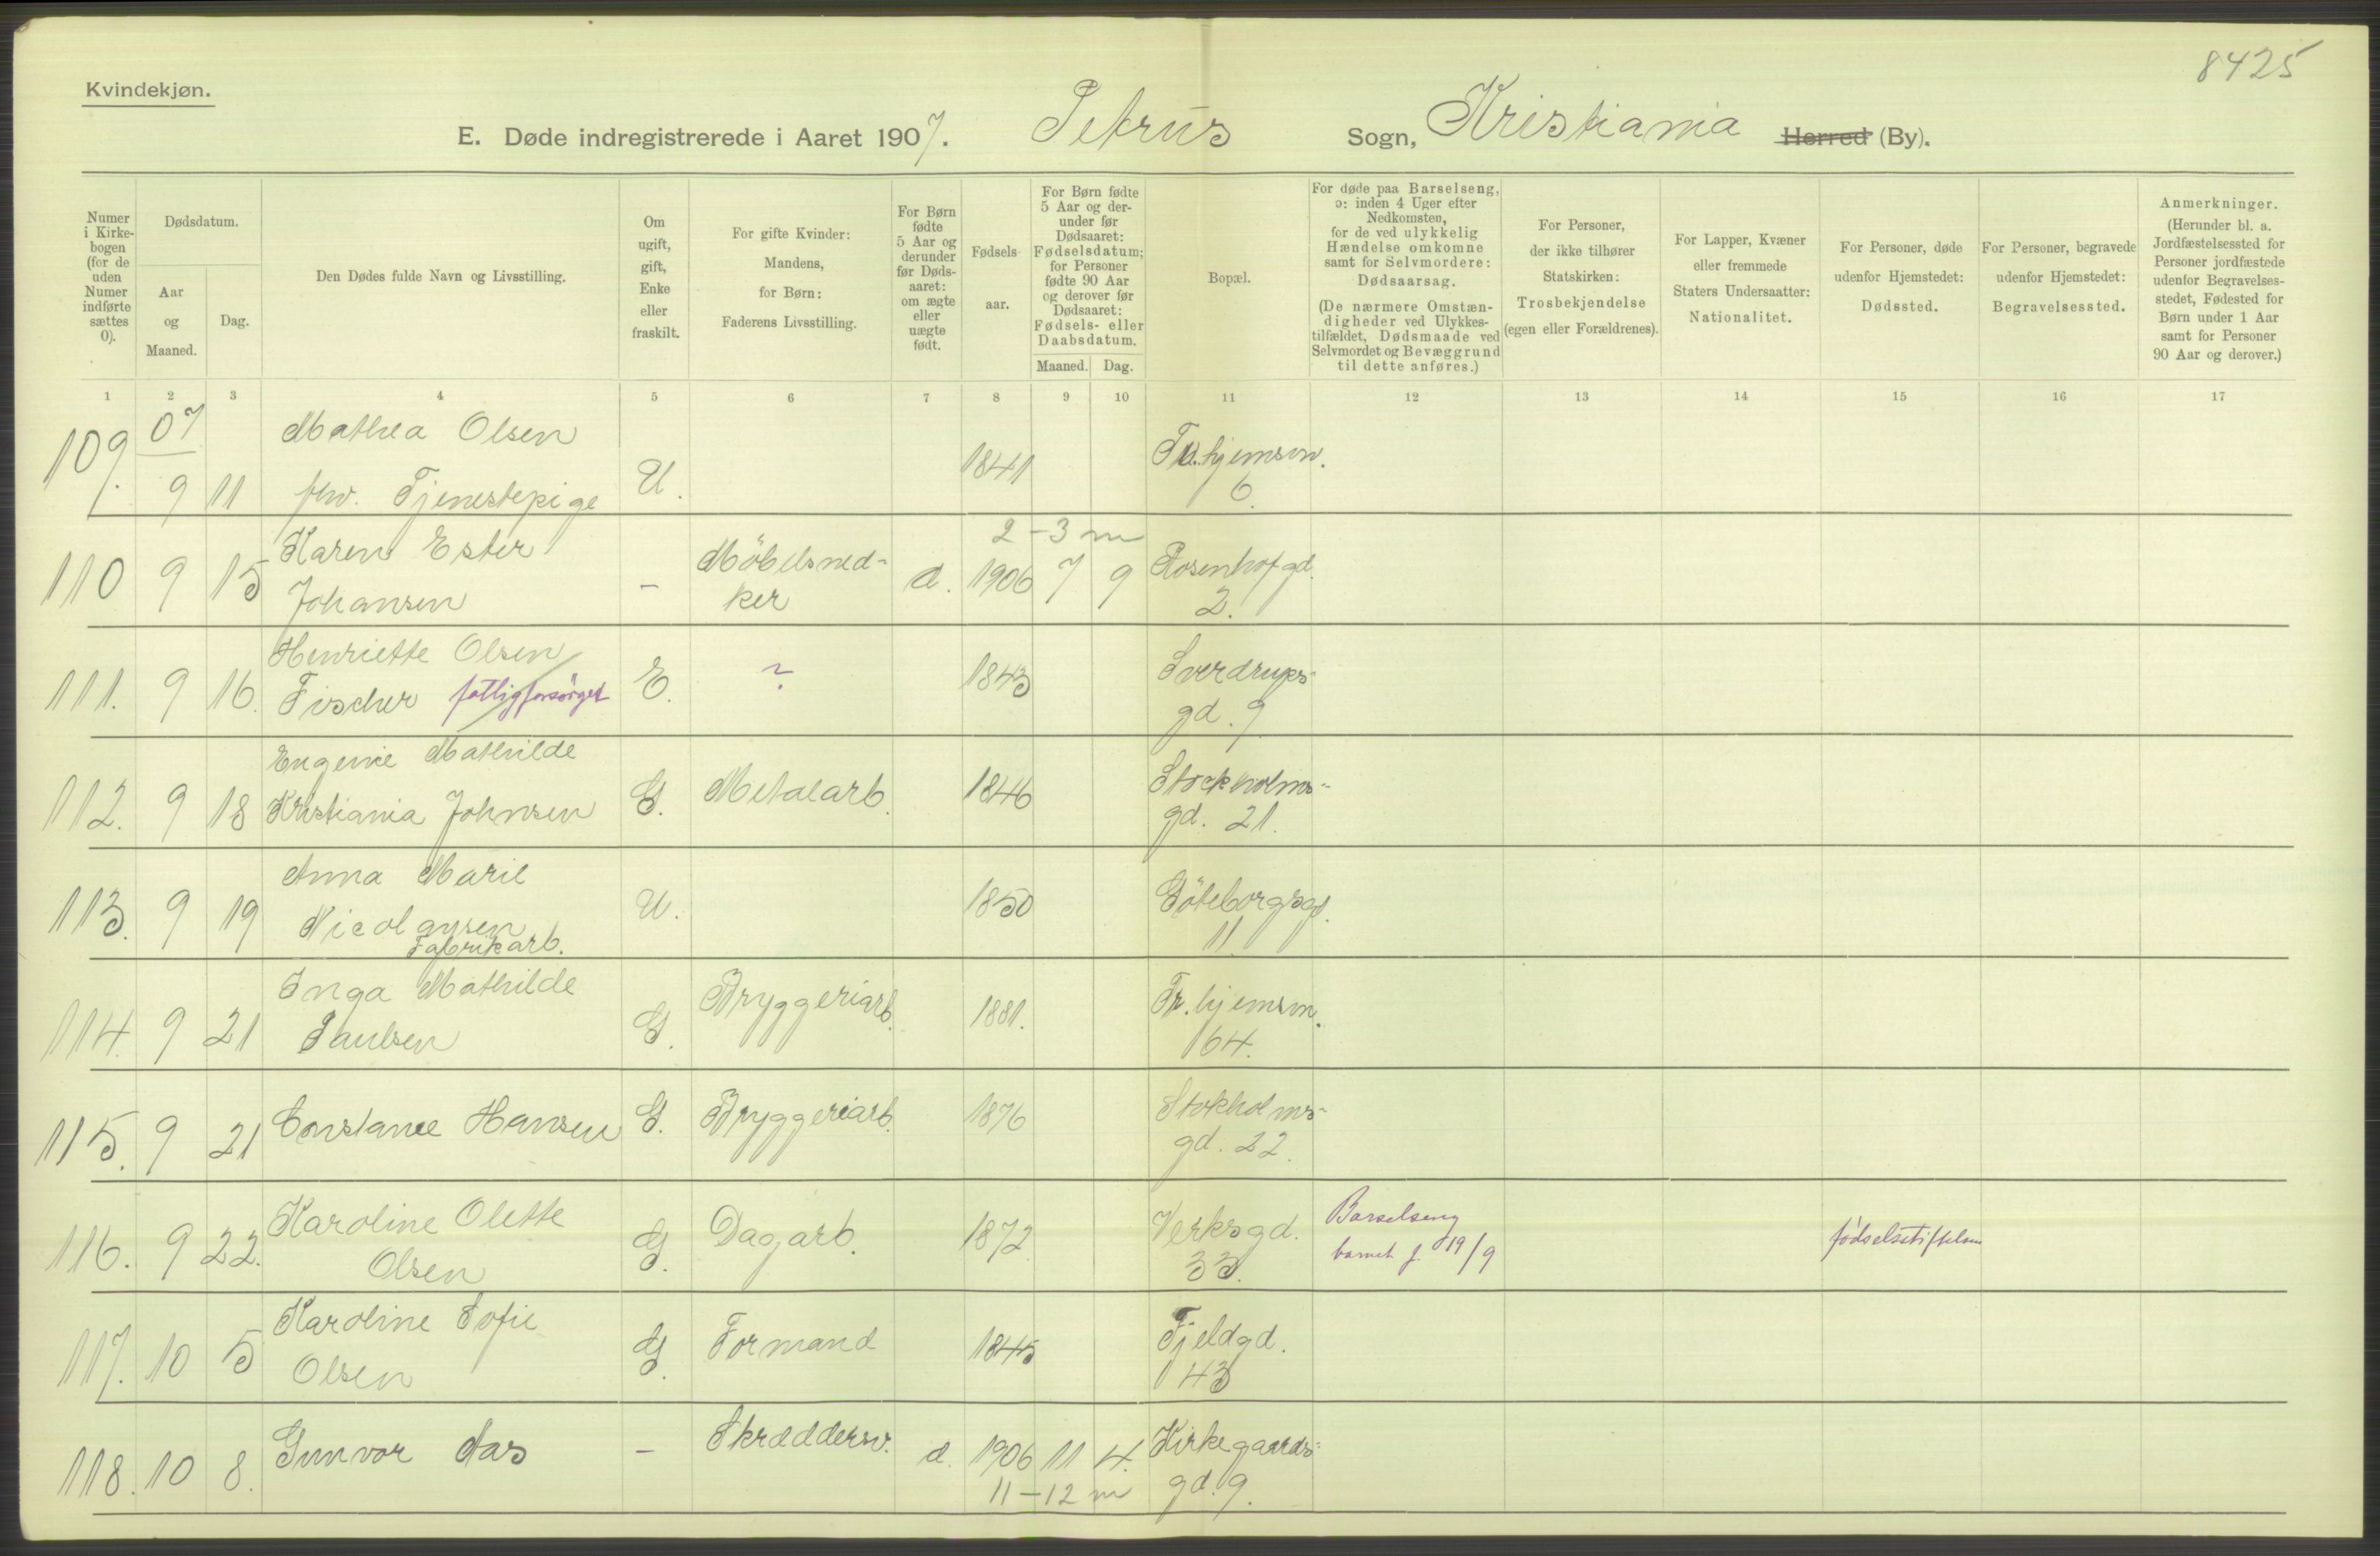 8425
Kvindekjøn.
E. Døde indregistrerede i Aaret 1907. Petrus Sogn, Kristiania Herred (By).
Numer i Kirke-bogen (for de uden Numer indførte sættes 0).
Dødsdatum.
Aar og Maaned.
Dag.
Den Dødes fulde Navn og Livsstilling.
Om ugift, gift, Enke eller fraskilt.
For gifte Kvinder: Mandens, for Børn: Faderens Livsstilling.
For Børn fødte 5 Aar og derunder før Døds-aaret: om ægte eller uægte født.
Fødsels-aar.
For Børn fødte 5 Aar og der-under før Dødsaaret: Fødselsdatum; for Personer fødte 90 Aar og derover før Dødsaaret: Fødsels- eller Daabsdatum.
Maaned. Dag.
Bopæl.
For døde paa Barselseng, ɔ: inden 4 Uger efter Nedkomsten, for de ved ulykkelig Hændelse omkomne samt for Selvmordere: Dødsaarsag.
(De nærmere Omstæn-digheder ved Ulykkes-tilfældet, Dødsmaade ved Selvmordet og Bevæggrund til dette anføres.)
For Personer, der ikke tilhører Statskirken: Trosbekjendelse (egen eller Forældrenes).
For Lapper, Kvæner eller fremmede Staters Undersaatter: Nationalitet.
For Personer, døde udenfor Hjemstedet: Dødssted.
For Personer, begravede udenfor Hjemstedet: Begravelsessted.
Anmerkninger.
(Herunder bl. a. Jordfæstelsessted for Personer jordfæstede udenfor Begravelses-stedet, Fødested for Børn under 1 Aar samt for Personer 90 Aar og derover.)
1 2 3 4 5 6 7 8 9 10 11 12 13 14 15 16 17
109. 07 Mathea Olsen
9 11 fhv. Tjenestepige U. 1841 Tr.hjemsvn. 6
2-3 m
110 9 15 Karen Ester Johansen - Möbelsned-ker d. 1906 7 9 Rosenhofgd. 2.
111. 9 16. Henriette Olsen
Fischer fattigforsørget E. ? 1843 Sverdrups-gd. 9
112. 9 18 Eugenie Mathilde
Kristiania Johnsen G. Metalarb. 1846 Stockholms-gd. 21.
113. 9 19 Anna Marie
Nicolaysen
Fabrikarb. U. 1850 Göteborgsgd. 11
114. 9 21 Inga Mathilde
Paulsen G. Bryggeriarb. 1881. Tr.hjemsvn. 64.
115. 9 21 Constance Hansen G. Bryggeriarb. 1876 Stokholms-gd. 22.
116. 9 22. Karoline Olette
Olsen G. Dagarb. 1872 Verksgd. 33. Barselseng
barnet f. 19/9 fødselsstiftelsen
117. 10 5 Karoline Sofie
Olsen G. Formand 1845 Fjeldgd. 43
118. 10 8. Gunvor Aas - Skræddersv. d. 1906 11 4. Kirkegaards-gd. 9.
11-12 m